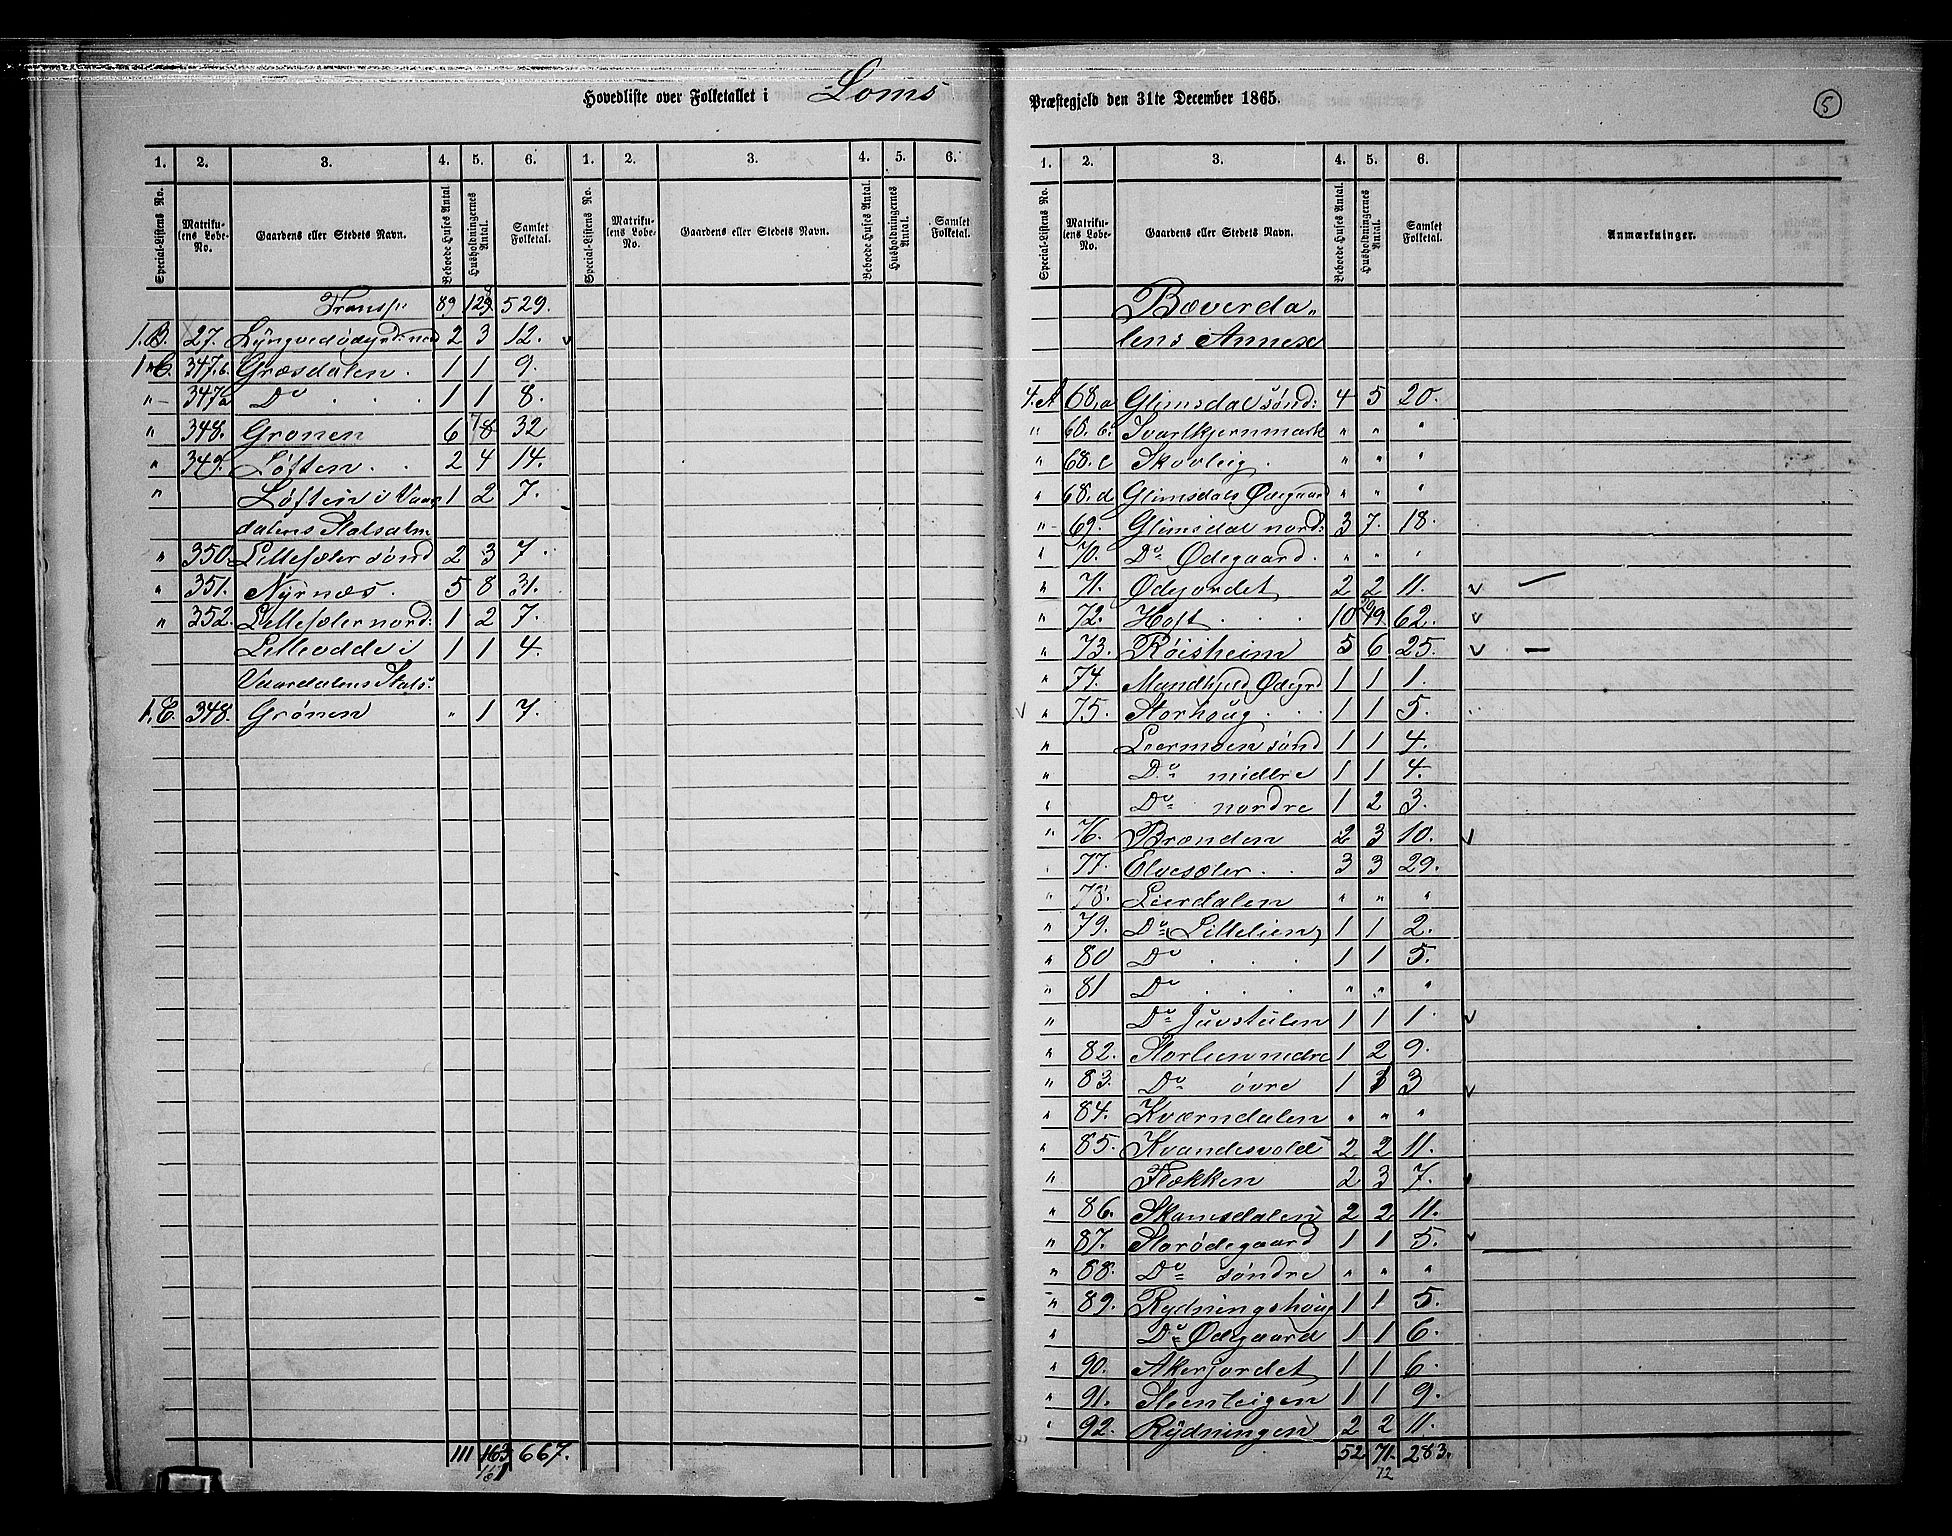 Hovedliste over Folketallet i Loms Præstegjeld den 31te December 1865.
5
1. 2. 3. 4. 5. 6. 1. 2. 3. 4. 5. 6.
Special-Listens No. Matrikulens Løbe-No. Gaardens eller Stedets Navn. Beboede Huses Antal. Husholdningernes Antal. Samlet Folketal. Special-Listens No. Matrikulens Løbe-No. Gaardens eller Stedets Navn. Beboede Huses Antal. Husholdningernes Antal. Samlet Folketal.
Transp: 89 129 529.
1.B. 27. Lyngvedødegrd: ned 2 3 12. v
1.C. 347.b. Græsdalen . 1 1 9.
" 347a Do . . . 1 1 8.
" 348. Grønen 6 8 32
" 349. Løften . . 2 4 14.
" Løften i Vaar 1 2 7.
dalens Statsalm
" 350. Lillesæter sønd 2 3 7.
" 351. Nyrnæs . 5 8 31.
" 352. Lillesæter nord: 1 2 7.
Lilleodde i 1 1 4.
Vaardalens Stats:
1.C. 348. Grønen " 1 7.
111 163 667.
161
1. 2. 3. 4. 5. 6.
Special-Listens No. Matrikulens Løbe-No. Gaardens eller Stedets Navn. Beboede Huses Antal. Husholdningernes Antal. Samlet Folketal. Anmærkninger.
Bæverda„
lens Annex
4.A 68.a Glimsdal sønd: 4 5 20.
" 68.b. Svartkjernmark " " "
" 68.c Skovleig . " " "
" 68.d Glimsdals Ødegaard " " "
" 69. Glimsdal nord: 3 7. 18.
" 70. Do Ødegaard . " " "
" 71. Ødejordet 2 2 11. v
" 72. Hoft . . . 10 19 62. v
" 73. Røisheim 5 6 25. v
" 74. Mandhjeld Ødegrd 1 1 1.
v " 75. Storhoug . . . 1 1 5.
" Leermoen sønd 1 1 4.
" Do midtre 1 1 4.
" Do nordre 1 2 3.
" 76. Brænden 2 3 10. v
" 77. Elvesæter . . 3 3 29.
" 78. Leerdalen " " "
" 79. Do Lillelien 1 1 2.
" 80 Do . . . 1 1 5.
" 81 Do . . . " " "
" Do Juvstulen 1 1 1. v
" 82. Storlien nedre 1 2 9.
" 83. Do øvre 1 3 3 v
" 84. Kværndalen " " "
" 85. Kvandesvold 2 2 11.
" Flækken 2 3 7. v
" 86. Skamsdalen 2 2 11.
" 87. Storødegaard 1 1 5. v
" 88. Do søndre " " "
" 89. Rydningshoug 1 1 5.
" Do Ødegaard 1 1 6.
" 90. Akerjordet 1 1 6.
" 91. Steenteigen 1 1 9.
" 92. Rydningen 2 2 11.
52 71. 283.
72